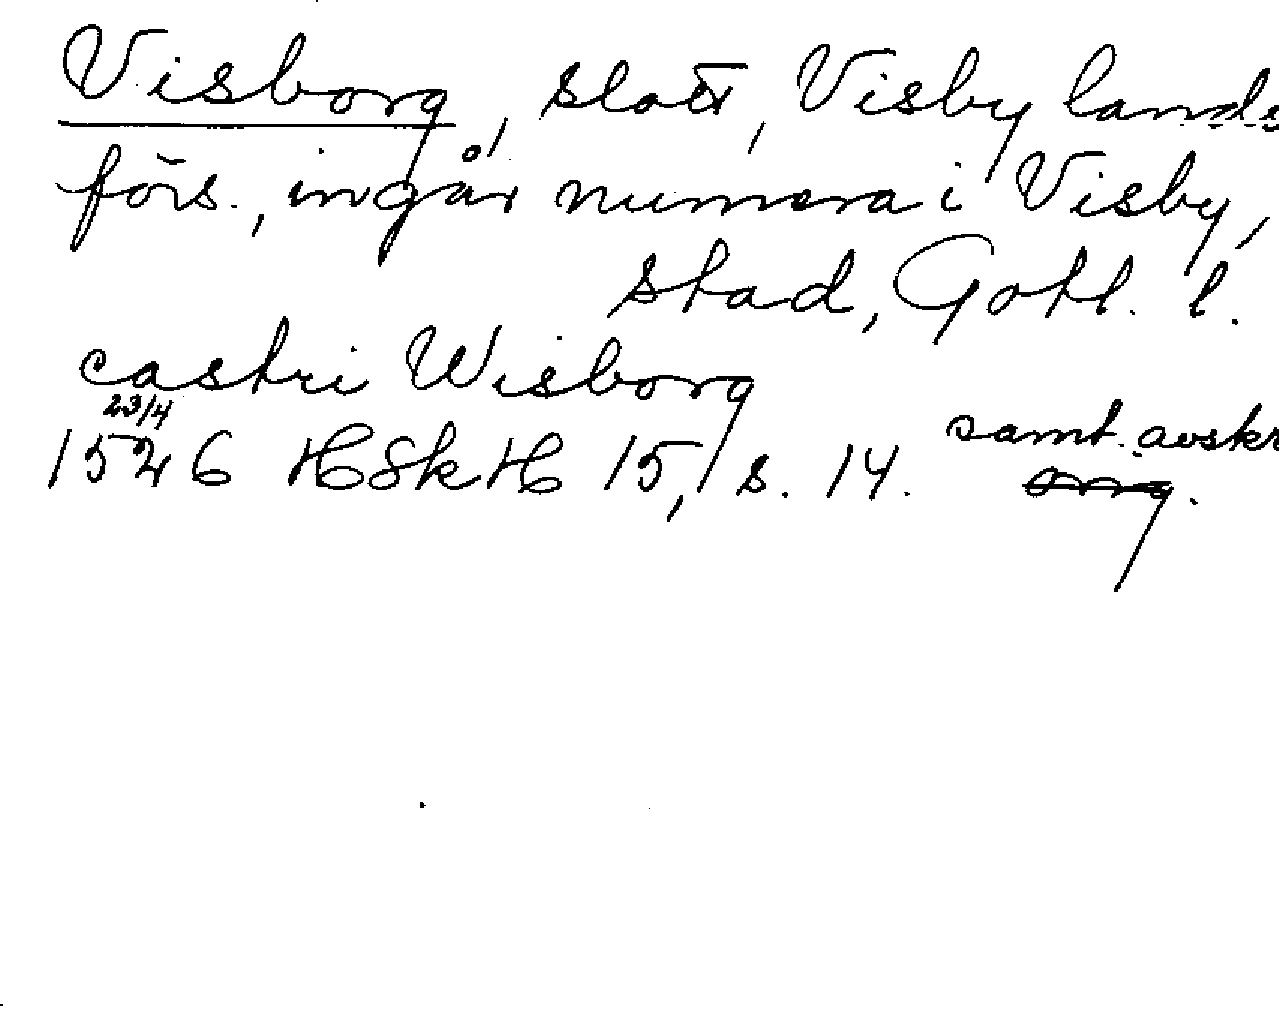 Visborg, slott, Visby lands
förs., ingår numera i Visby,
stad, Gotl. l.
castri Wisborg
23/4
1526 HSkH 15, s. 14. samt. avskr
orig.